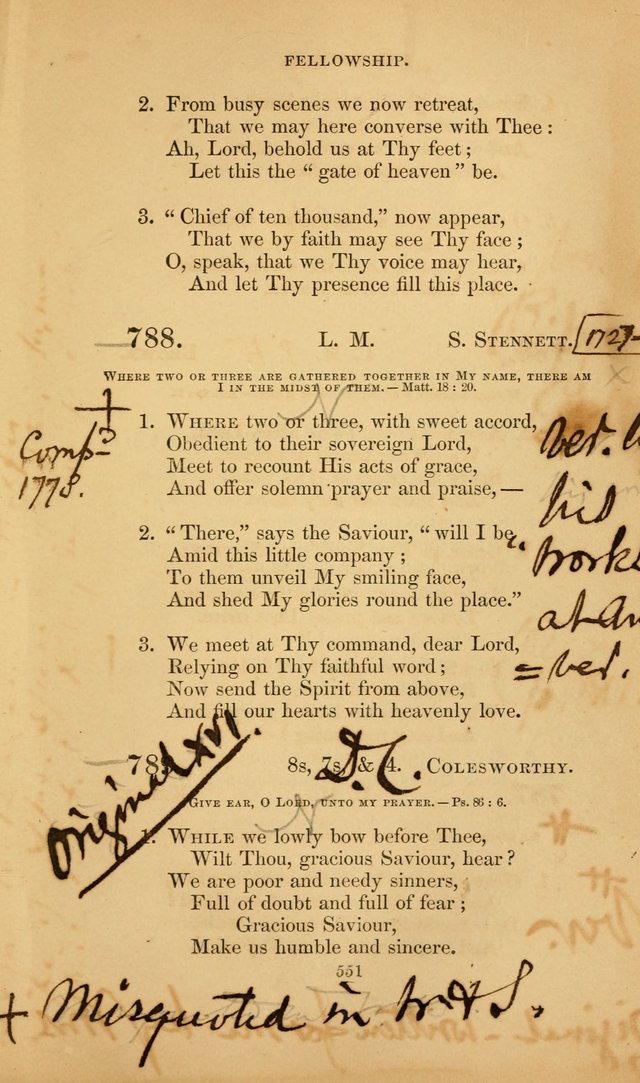 FELLOWSHIP.
2. From busy scenes we now retreat,
That we may here converse with Thee:
Ah, Lord, behold us at Thy feet;
Let this the “gate of heaven” be.
3. “Chief of ten thousand,” now appear,
That we by faith may see Thy face;
O, speak, that we Thy voice may hear,
And let Thy presence fill this place.
788. L. M. S. STENNETT. 1727-
WHERE TWO OR THREE ARE GATHERED TOGETHER IN MY NAME, THERE AM
I IN THE MIDST OF THEM.—Matt. 18:20.
Comp.
1778.
1. WHERE two or three, with sweet accord,
Obedient to their sovereign Lord,
Meet to recount His acts of grace,
And offer solemn prayer and praise,—
ver.
his
"works
at
= ver.
2. “There,” says the Saviour, “will I be
Amid this little company;
To them unveil My smiling face,
And shed My glories round the place.”
3. We meet at Thy command, dear Lord,
Relying on Thy faithful word;
Now send the Spirit from above,
And fill our hearts with heavenly love.
Original XVI.
78 8s, 7s, & 4. D. C. COLESWORTHY.
GIVE EAR, O LORD, UNTO MY PRAYER.—Ps. 86:6.
1. WHILE we lowly bow before Thee,
Wilt Thou, gracious Saviour, hear?
We are poor and needy sinners,
Full of doubt and full of fear;
Gracious Saviour,
Make us humble and sincere.
551
+ Misquoted in W&S.